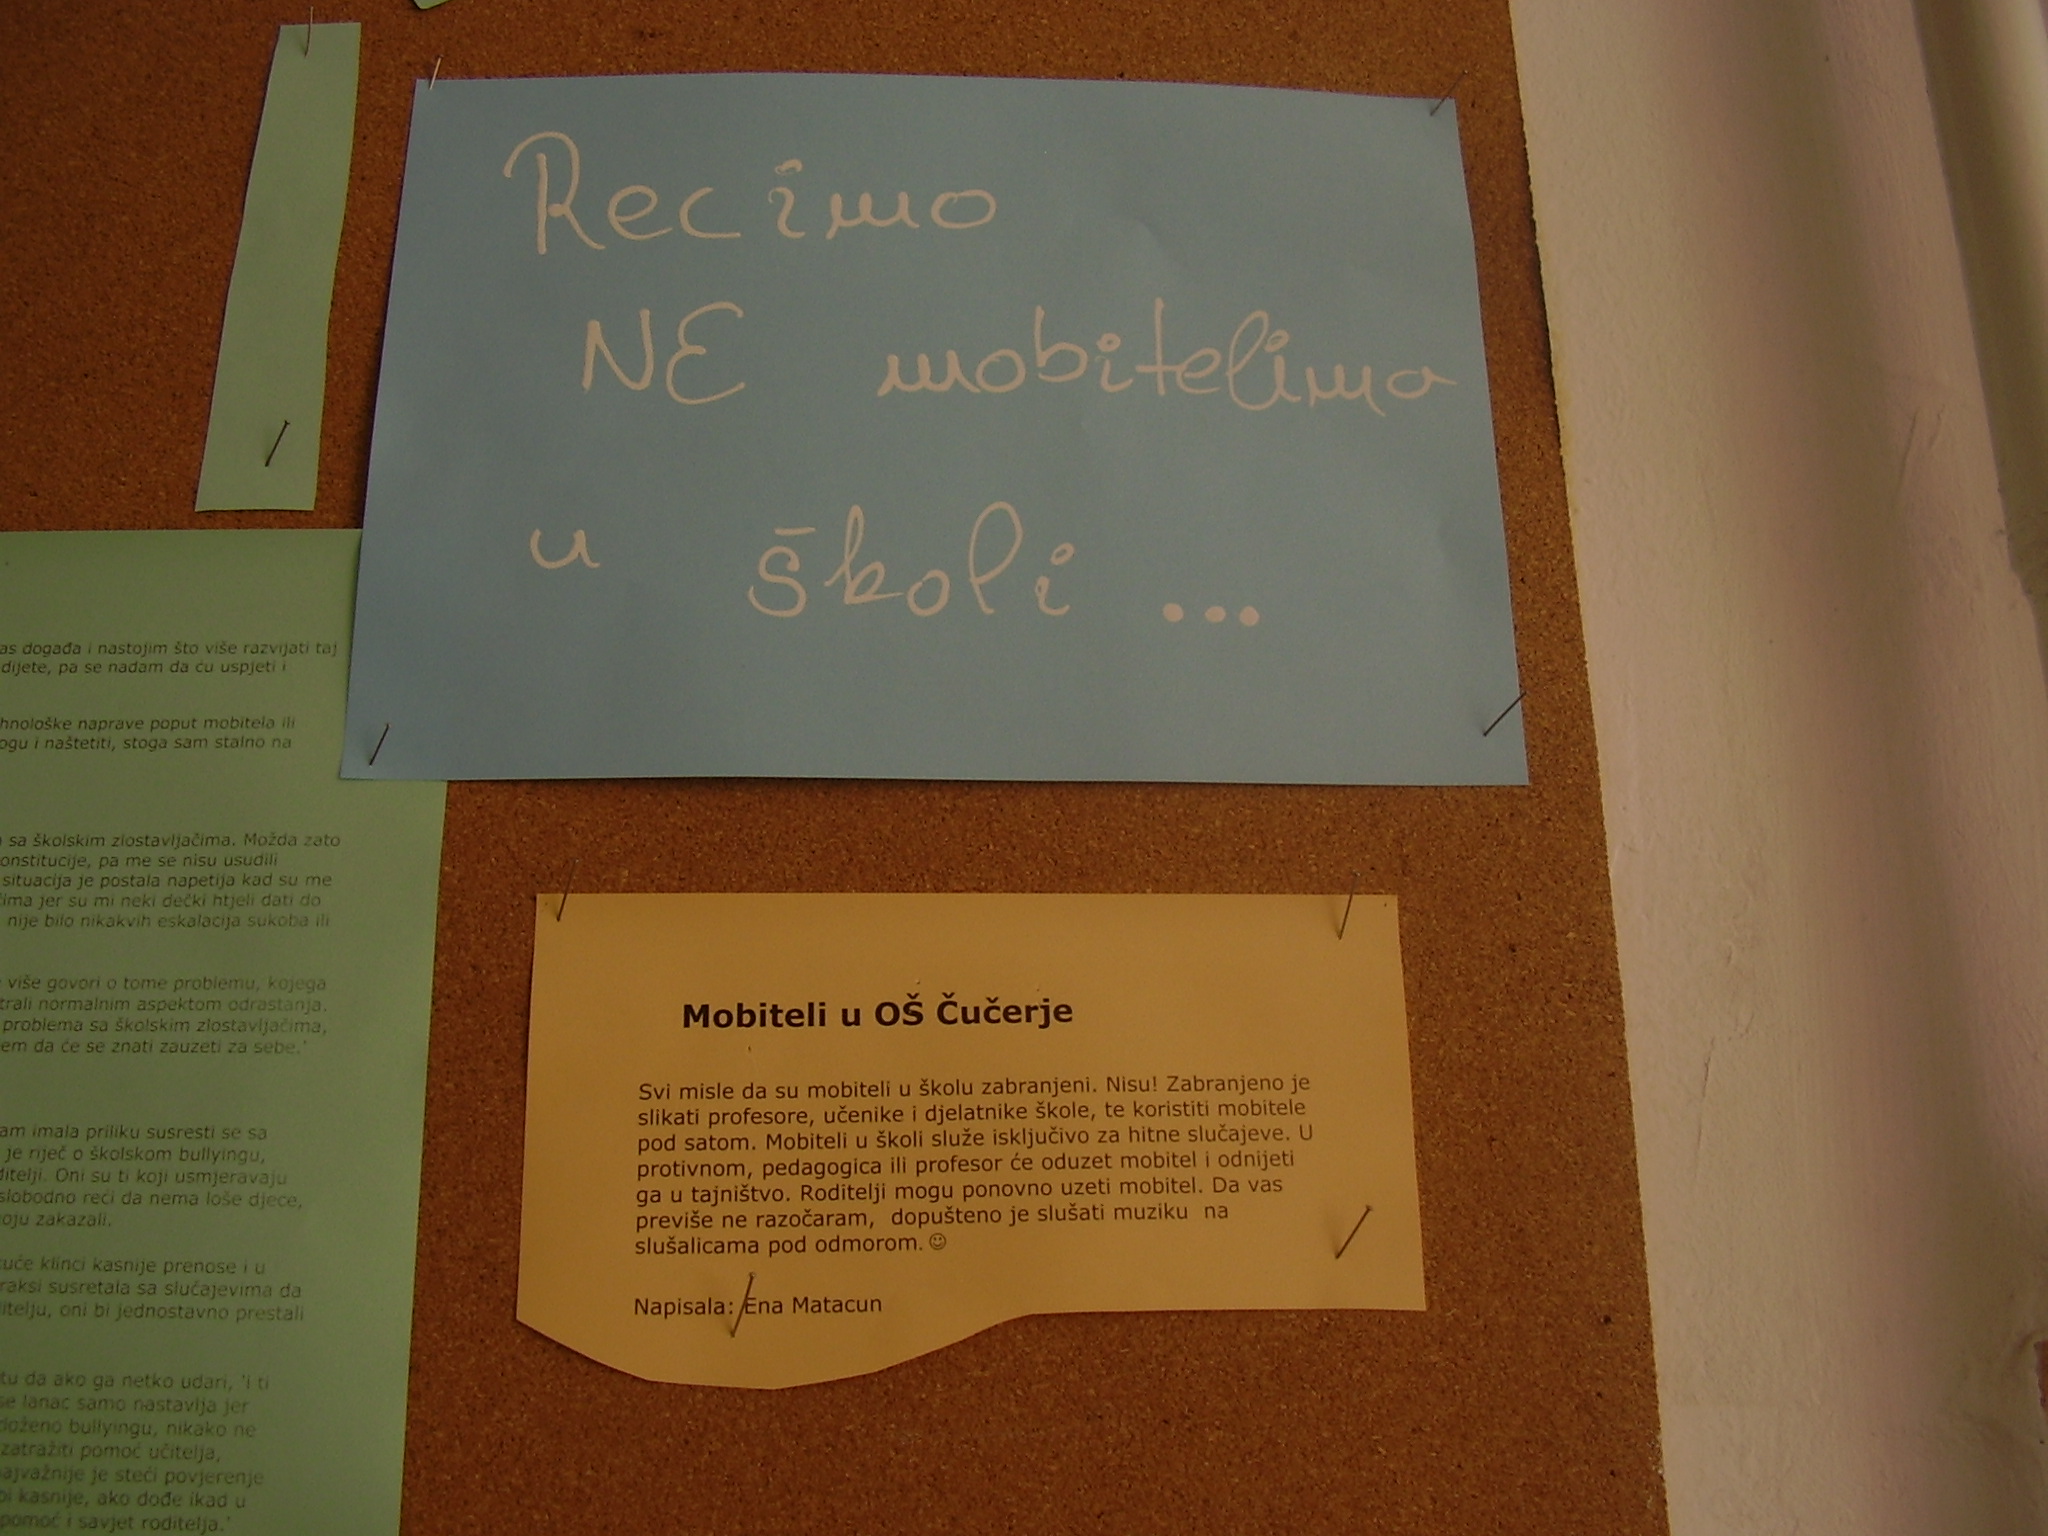 Recimo
NE mobitelima
u školi ...
as događa i nastojim što više razvijati taj
dijete, pa se nadam da ću uspjeti i
hnološke naprave poput mobitela ili
ogu i naštetiti, stoga sam stalno na
sa školskim zlostavljačima. Možda zato
onstitucije, pa me se nisu usudili
situacija je postala napetija kad su me
čima jer su mi neki dečki htjeli dati do
nije bilo nikakvih eskalacija sukoba ili
više govori o tome problemu, kojega
trali normalnim aspektom odrastanja.
problema sa školskim zlostavljačima,
em da će se znati zauzeti za sebe.'
am imala priliku susresti se sa
je riječ o školskom bullyingu,
ditelji. Oni su ti koji usmjeravaju
slobodno reći da nema loše djece,
oju zakazali.
kuće klinci kasnije prenose i u
raksi susretala sa slučajevima da
itelju, oni bi jednostavno prestali
tu da ako ga netko udari, 'i ti
se lanac samo nastavlja jer
doženo bullyingu, nikako ne
zatražiti pomoć učitelja,
ajvažnije je steći povjerenje
bi kasnije, ako dođe ikad u
pomoć i savjet roditelja.'
Mobiteli u OŠ Čučerje
Svi misle da su mobiteli u školu zabranjeni. Nisu! Zabranjeno je
slikati profesore, učenike i djelatnike škole, te koristiti mobitele
pod satom. Mobiteli u školi služe isključivo za hitne slučajeve. U
protivnom, pedagogica ili profesor će oduzet mobitel i odnijeti
ga u tajništvo. Roditelji mogu ponovno uzeti mobitel. Da vas
previše ne razočaram, dopušteno je slušati muziku na
slušalicama pod odmorom.☺
Napisala: Ena Matacun